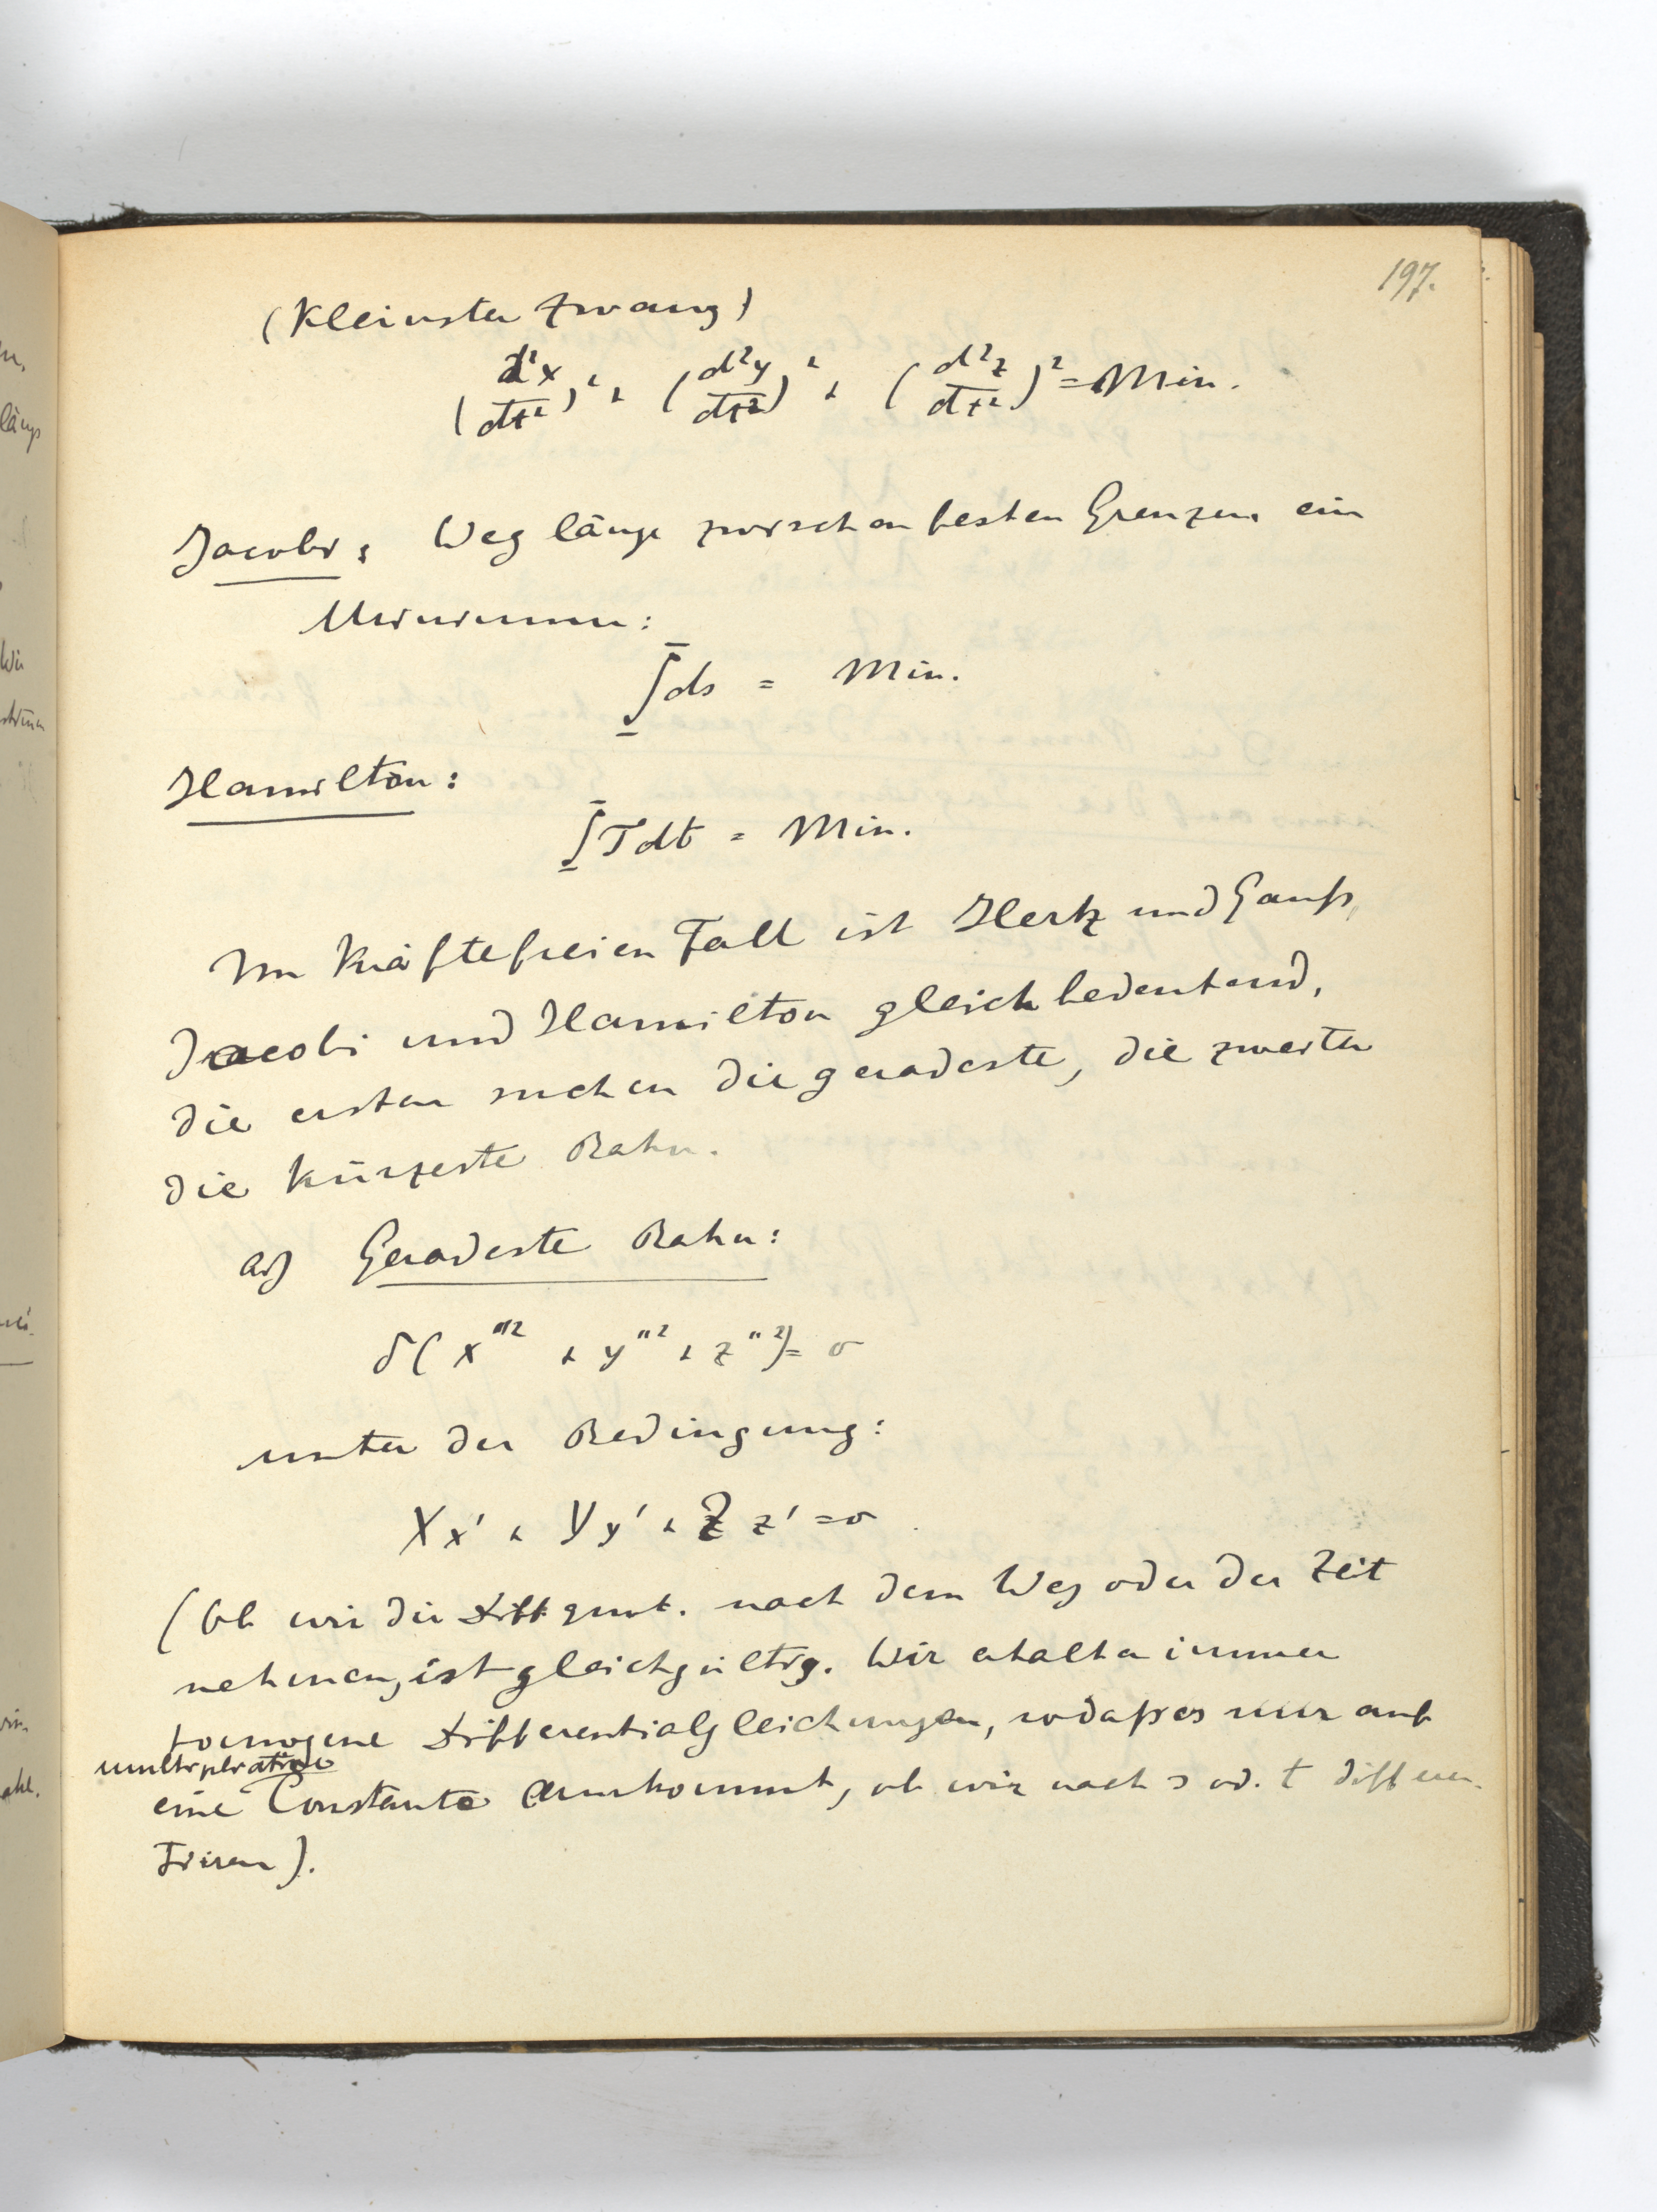 197.
(Kleinster Zwang)
(d²x/dt²)² + (d²y/dt²)² + (d²z/dt²)² = Min.
Jacobi: Weglänge zwischen festen Grenzen ein
Minimum:
∫ds = Min.
Hamilton:
∫Tdt = Min.
Im kräftefreien Fall ist Hertz und Gauß,
Jacobi und Hamilton gleichbedeutend,
die ersten suchen die geradeste, die zweiten
die kürzeste Bahn.
a) Geradeste Bahn:
δ(x''² + y''² + z''²) = 0
unter der Bedingung:
Xx' + Yy' + Zz' = 0
(Ob wir die Diffquot. nach dem Weg oder der Zeit
nehmen, ist gleichgültig. Wir erhalten immer
homogene Differentialgleichungen, sodaß es nur auf
multiplicative
eine Constante ankommt, ob wir nach s od. t differen-
tiiren).
längs
Wir